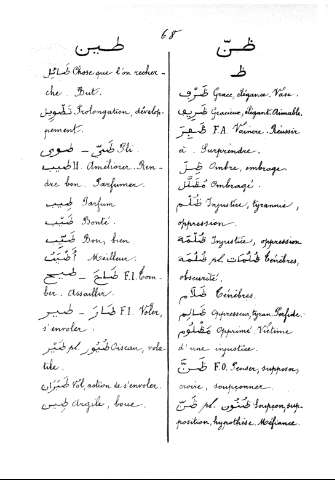 68
طين
طَائِل Chose que l'on recher-
che. But.
تَطْوِيل Prolongation, dévelop-
pement.
طَىّ – طوى Pli
طيب II. Améliorer. Ren-
dre bon. Parfumer
طِيب Parfum
طِيب Bonté.
طَيِّب Bon, bien
أَطْيَب Meilleur.
طَاحَ – طيح F.I. Tom-
ber. Assaillir.
طَارَ – طير F.I. Voler,
s'envoler.
طَيْر pl. طُيُور Oiseau, vola-
tile.
طَيَرَان Vol, action de s'envoler.
طِين Argile, boue.
ظنّ
ظ
ظَرْف Grace, élégance. Vase.
ظَرِيف Gracieux, élégant. Aimable.
ظَفِرَ F.A. Vaincre. Réussir
à. Surprendre.
ظِلّ Ombre, ombrage
مُظَلَّل Ombragé.
ظُلْم Injustice, tyrannie,
oppression.
ظُلْمَة Injustice, oppression
ظُلْمَة pl. ظُلُمَات Ténèbres,
obscurité.
ظَلَام Ténèbres.
ظَالِم Oppresseur, tyran. Perfide.
مَظْلُوم Opprimé. Victime
d'une injustice.
ظَنَّ F.O. Penser, supposer,
croire, soupçonner
ظَنّ pl. ظُنُون Soupçon, sup-
position, hypothèse. Méfiance.